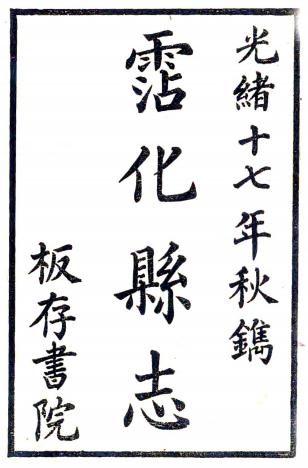 光緒十七年秋鐫
霑化縣志
板存書院